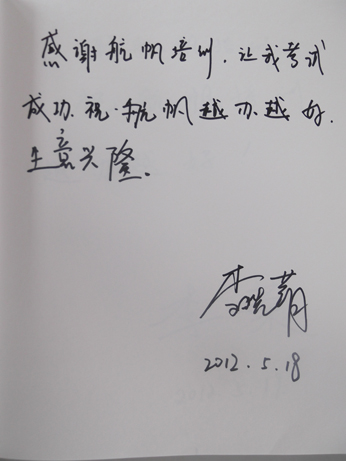 感谢航帆培训，让我考试
成功。祝航帆越办越好，
生意兴隆。
2012.5.18